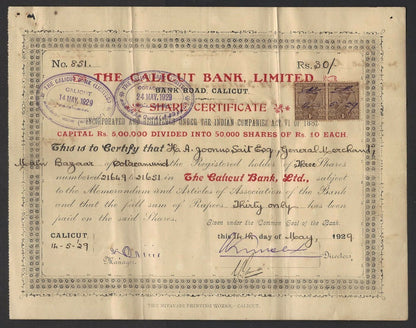 No. 851.
Rs. 30/-
THE CALICUT BANK, LIMITED
BANK ROAD, CALICUT.
THE CALICUT BANK LIMITED
CALICUT
14 MAY. 1929
24 MAY. 1929
SHARE CERTIFICATE
INCORPORATED UNDER THE INDIAN COMPANIES ACT VI OF 1882
CAPITAL Rs. 5,00,000 DIVIDED INTO 50,000 SHARES OF Rs. 10 EACH.
This is to Certify that H. A. Joonus Sait Esq, General Merchant,
Main Bazaar Ootacamund the Registered holder of Three Shares
numbered 21649/21651 in The Calicut Bank, Ltd., subject
to the Memorandum and Articles of Association of the Bank
and that the full sum of Rupees Thirty only has been
paid on the said Shares.
Given under the Common Seal of the Bank.
CALICUT. this 14th day of May, 1929
14-5-29
Manager.
Directors.
CALICUT.